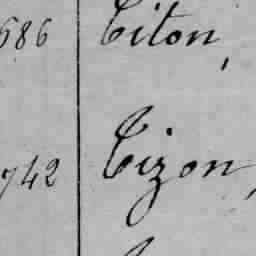 586 Citon,
742 Cizon,